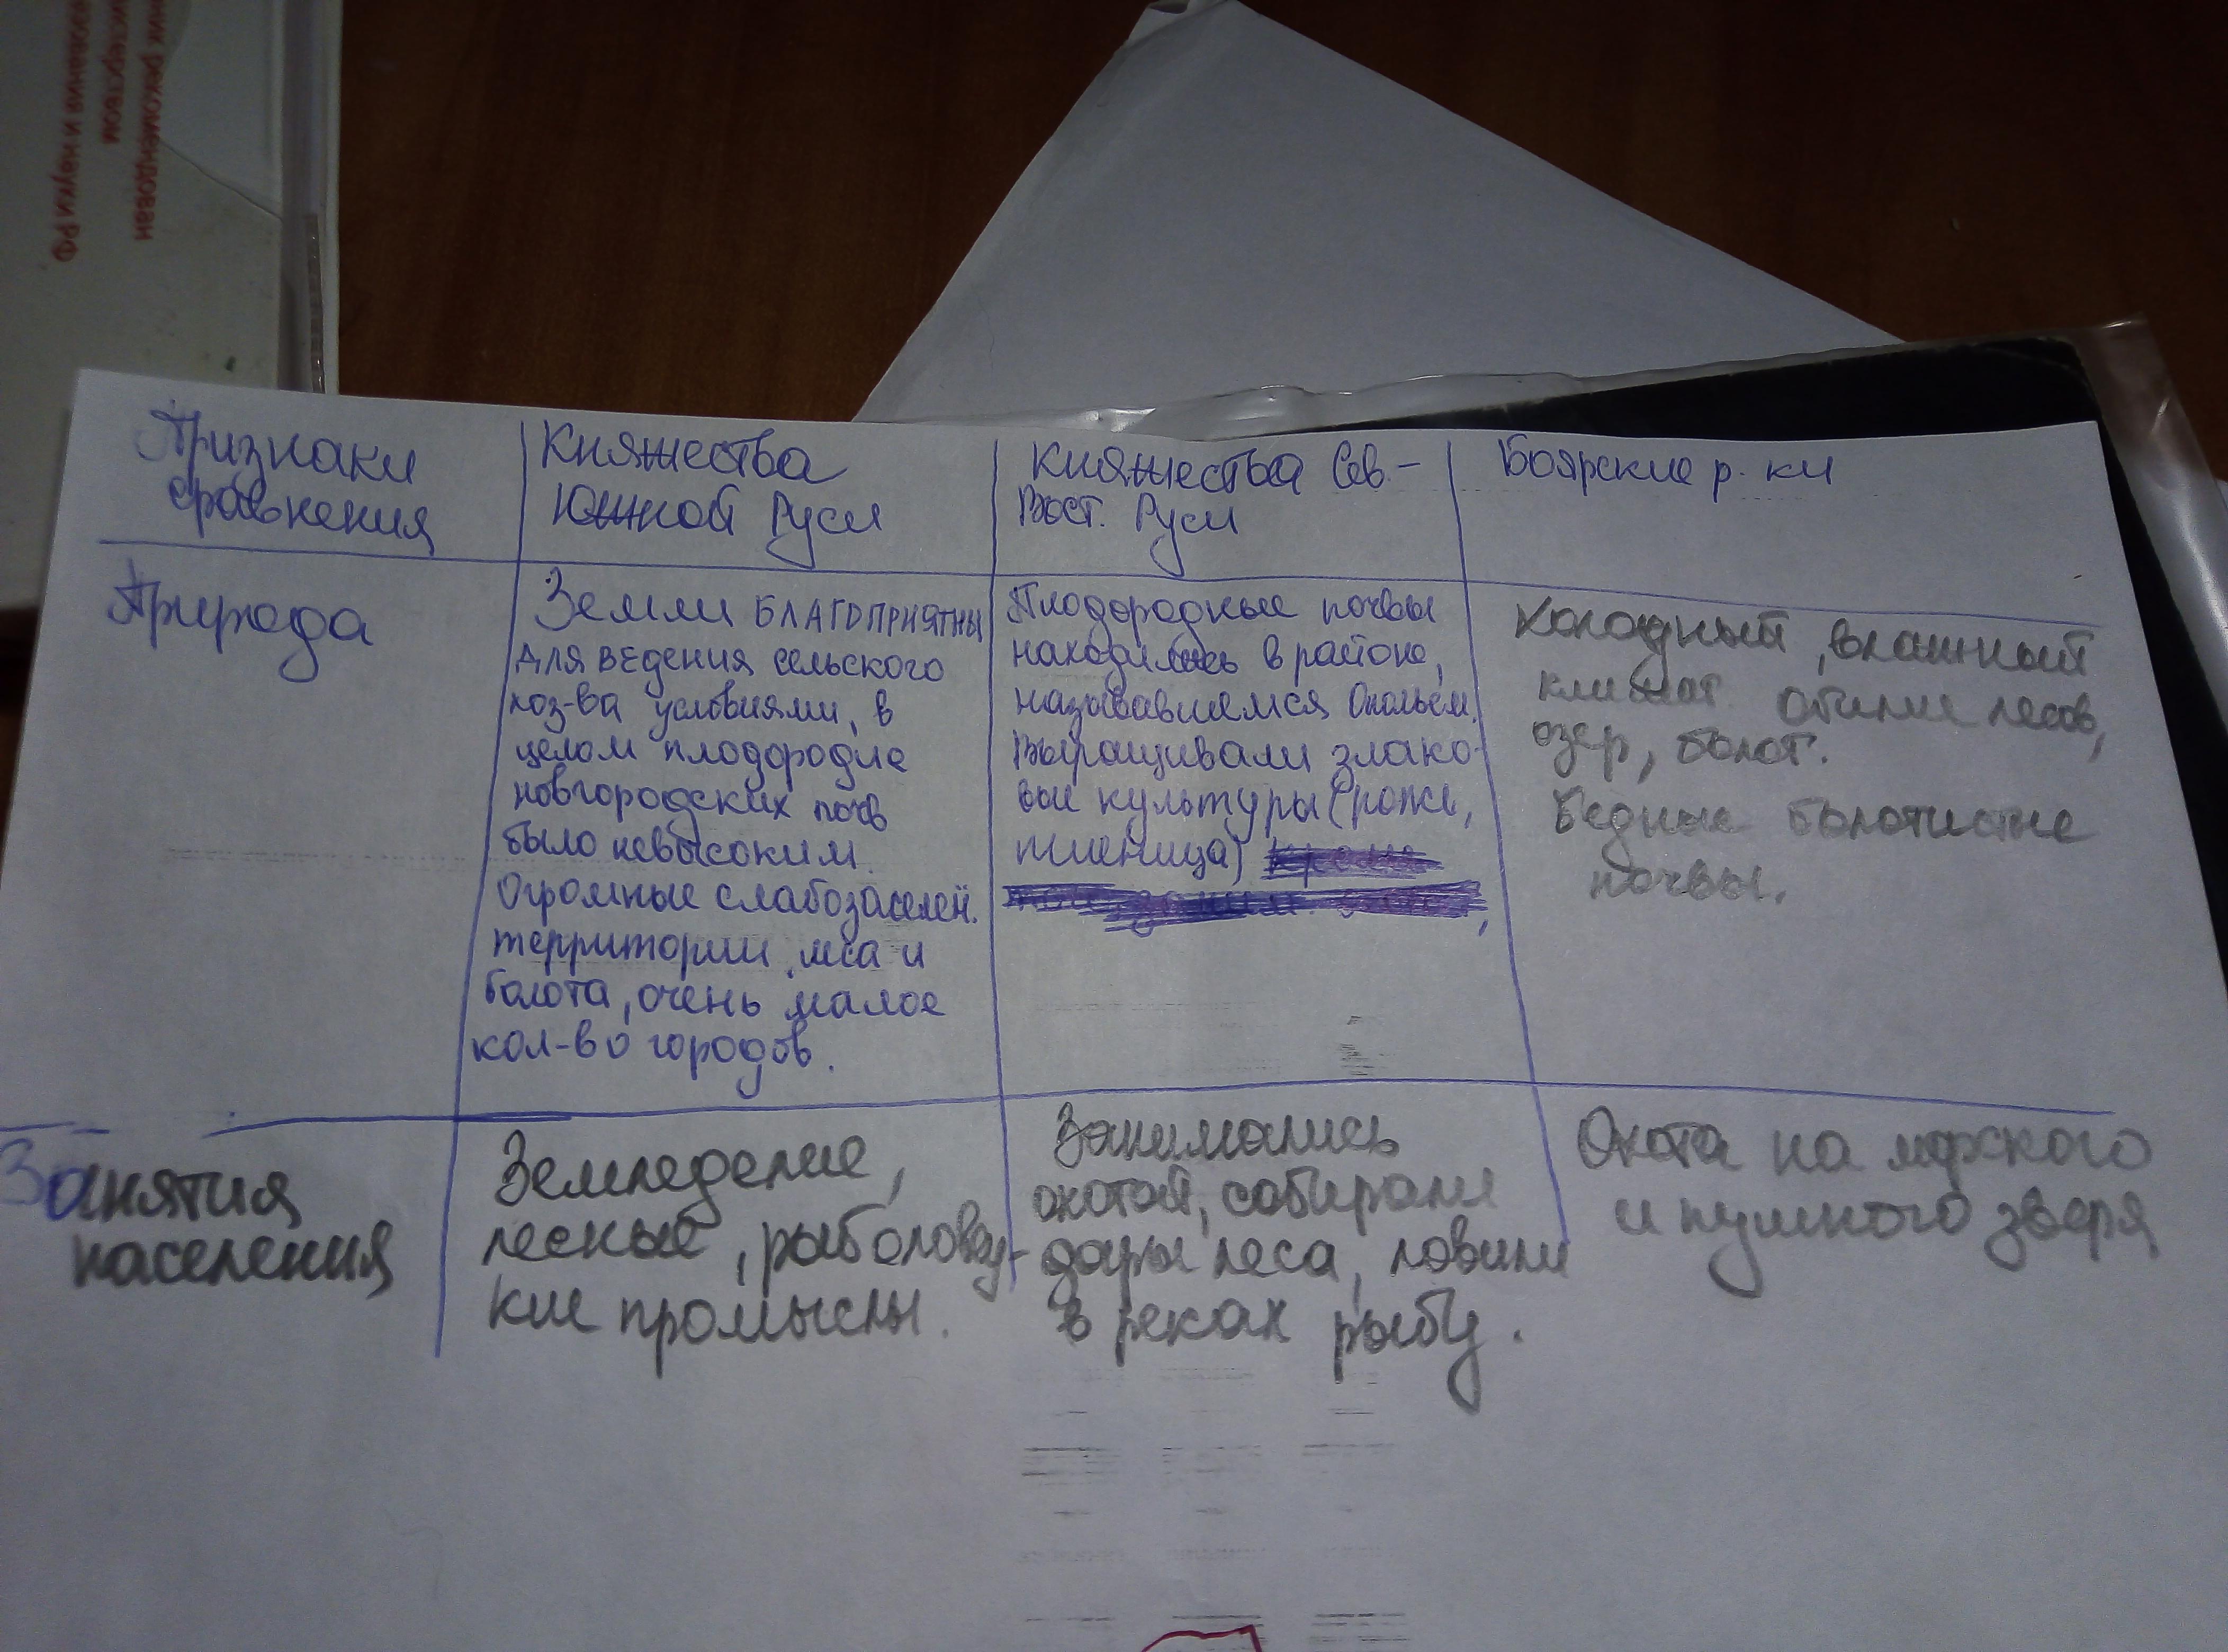 ник рекомендован
истерством
азования и науки РФ
Признаки
сравнения
Княжества
Южной Руси
Княжества Сев.-
Вост. Руси
Боярские р-ки
Природа
Земли БЛАГОПРИЯТНЫ
для ведения сельского
хоз-ва условиями, в
целом плодородие
новгородских почв
было невысоким.
Огромные слабозаселён.
территории, леса и
болота, очень малое
кол-во городов.
Плодородные почвы
находились в районе,
называвшемся Опольем.
Выращивали злако-
вые культуры (рожь,
пшеница)
Холодный, влажный
климат обилие лесов,
озер, болот.
Бедные болотистые
почвы.
Занятия
населения
Земледелие,
лесные, рыболовец-
кие промыслы.
Занимались
охотой, собирали
дары леса, ловили
в реках рыбу.
Охота на морского
и пушного зверя